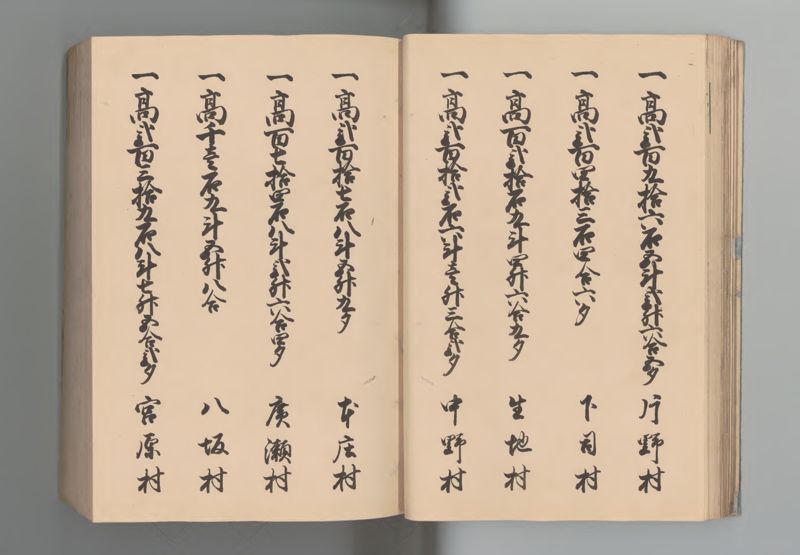 一高弐百九拾六石五斗弐升六合五夕 片野村
一高弐百四拾三石四合六夕 下司村
一高百弐拾石九斗四升六合九夕 生地村
一高弐百拾弐石六斗壱升三合弐夕 中野村
一高弐百拾七石八斗五升九夕 本庄村
一高百七拾四石八斗弐升六合四夕 廣瀬村
一高千三石九斗五升八合 八坂村
一高弐百三拾九石八斗七升五合弐夕 宮原村